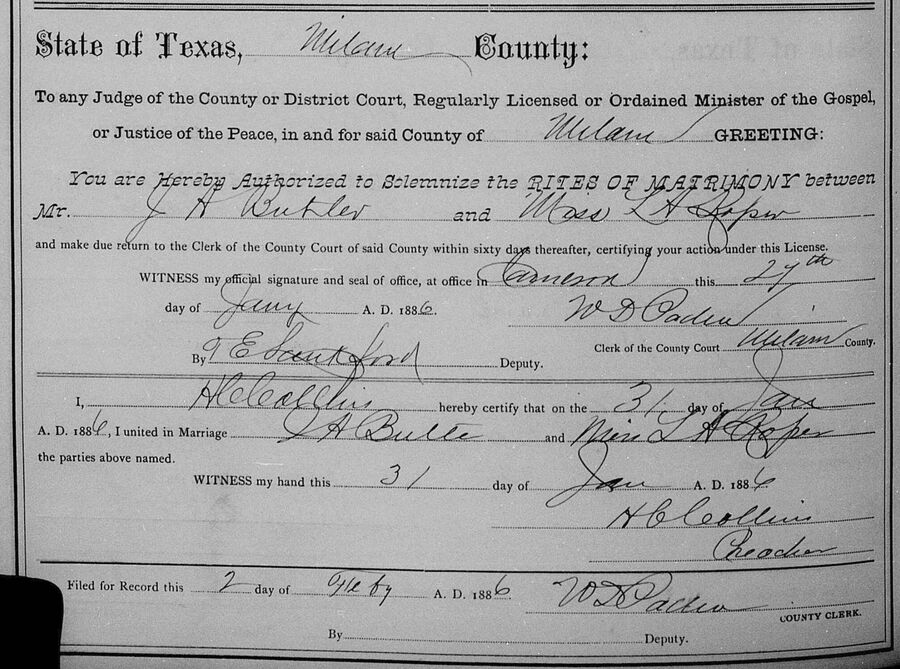 State of Texas, Milam County:
To any Judge of the County or District Court, Regularly Licensed or Ordained Minister of the Gospel,
or Justice of the Peace, in and for said County of Milam GREETING:
You are Hereby Authorized to Solemnize the RITES OF MATRIMONY between
Mr. J A Butler and Miss L A Roper
and make due return to the Clerk of the County Court of said County within sixty days thereafter, certifying your action under this License.
WITNESS my official signature and seal of office, at office in Cameron this 27th
day of Jany A. D. 1886. W D Paden
By Deputy. Clerk of the County Court Milam County.
I, H C Collins hereby certify that on the 31 day of Jan
A. D. 1886, I united in Marriage and Miss L A Roper
the parties above named.
WITNESS my hand this 31 day of Jan A. D. 1886
H C Collins
Preacher
Filed for Record this 2 day of Feby A. D. 1886 W D Paden
COUNTY CLERK.
By Deputy.